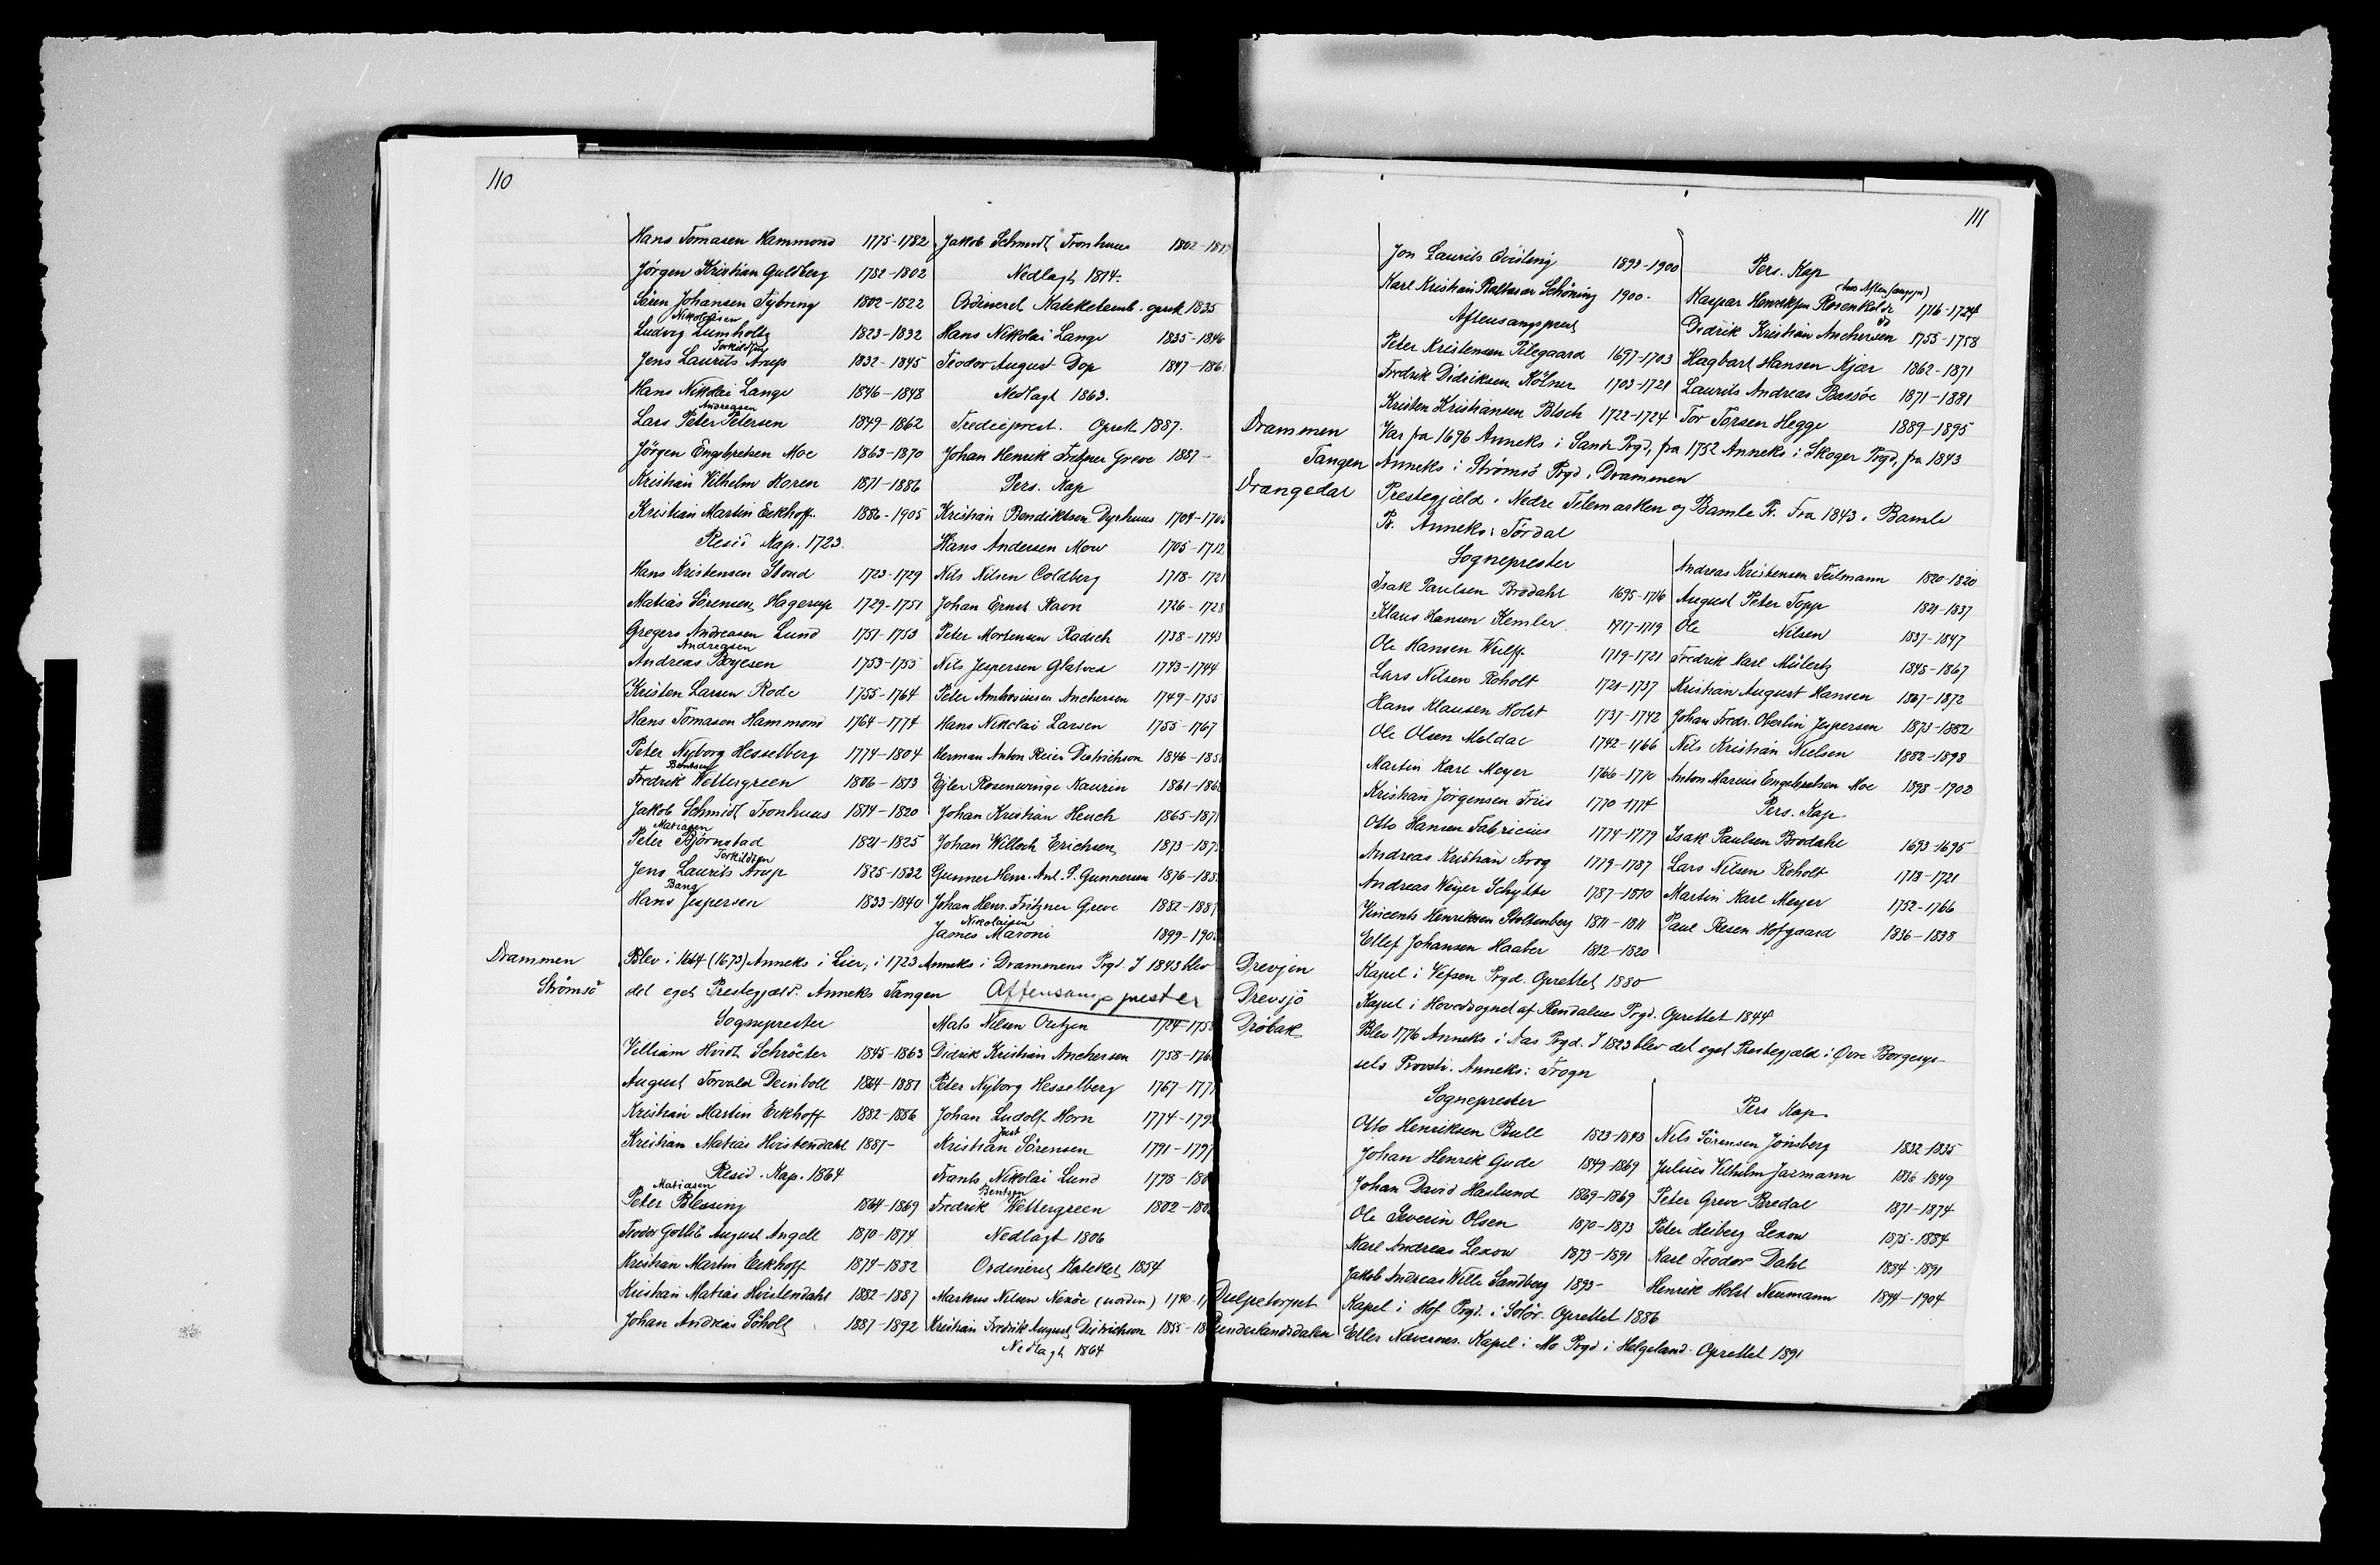 110
Hans Tomasen Hammond 1775-1782
Jörgen Kristian Guldberg 1782-1802
Sören Johansen Tybring 1802-1822
Nikolaisen
Ludvig Lumholtz 1823-1832
Torkildsen
Jens Laurits Arup 1832-1845
Hans Nikolai Lange 1846-1848
Andreasen
Lars Peter Petersen 1849-1862
Jörgen Engebretsen Moe 1863-1870
Kristian Vilhelm Koren 1871-1886
Kristian Martin Eckhoff 1886-1905
Resid Kap. 1723.
Hans Kristensen Stoud 1723-1729
Matias Sörensen Hagerup 1729-1751
Gregers Andreasen Lund 1751-1753
Andreasen
Andreas Boyesen 1753-1755
Kristen Larsen Rode 1755-1764
Hans Tomasen Hammond 1764-1774
Peter Nyborg Hesselberg 1774-1804
Bentsen
Fredrik Wettergreen 1806-1813
Jakob Schmidt Tronhuus 1814-1820
Matiasen
Peter Bjørnstad 1821-1825
Torkildsen
Jens Laurits Arup 1825-1832
Bang
Hans Jespersen 1833-1840
Jakob Schmidt Tronhuus 1802-181
Nedlagt 1814.
Ordineret Kateketemb. opret 1835
Hans Nikolai Lange 1835-1846
Teodor August Dop 1847-186
Nedlagt 1863.
Tredieprest. Opret 1887.
Johan Henrik Fritzner Greve 1887-
Pers. Kap
Kristian Bendiktsen Dyrhuus 1704-1705
Hans Andersen Mow 1705-1712
Nils Nilsen Coldberg 1718-1721
Johan Ernst Ravn 1726-1728
Peter Mortensen Radsch 1738-1743
Nils Jespersen Glatved 1743-1744
Peter Ambrosiusen Anchersen 1749-1755
Hans Nikolai Larsen 1755-1767
Herman Anton Reier Dietrichson 1846-185
Ejler Rosenvinge Kaurin 1861-186
Johan Kristian Heuch 1865-187
Johan Willoch Erichsen 1873-187
Gunner Henr. Ant. P. Gunnersen 1876-188
Johan Henr. Fritzner Greve 1882-1887
Nikolaisen
James Maroni 1899-190
Drammen Blev i 1664 (1673) Anneks i Lier, i 1723 Anneks i Drammens Prgd. I 1843 blev
Strømsö det eget Prestegjæld. Anneks Tangen Aftensangsprester
Sogneprester
Villiam Hvidt Schröeter 1845-1863
August Torvald Deinboll 1864-1881
Kristian Martin Eckhoff 1882-1886
Kristian Matias Hvistendahl 1887-
Resid. Kap. 1864
Matiasen
Peter Blessing 1864-1869
Teodor Gotlib August Angell 1870-1874
Kristian Martin Eckhoff 1874-1882
Kristian Matias Hvistendahl 1882-1887
Johan Andreas Söholt 1887-1892
Mats Nilsen 1724-175
Didrik Kristian Anchersen 1758-176
Peter Nyborg Hesselberg 1767-177
Johan Ludolf Horn 1774-179
Just
Kristian Sörensen 1791-1797
Frants Nikolai Lund 1798-180
Bentsen
Fredrik Wettergreen 1802-180
Nedlagt 1806
Ordineret Kateket 1854
Markus Nilsen Nexöe (norden) 1740-1
Kristian Fredrik August Dietrichson 1855-18
Nedlagt 1864
111
Jon Laurits Qvisling 1893-1900
Karl Kristian Baltasar Schöning 1900-
Aftensangsprest
Peter Kristensen Pilegaard 1697-1703
Fredrik Didriksen Kölner 1703-1721
Kristen Kristiansen Bloch 1722-1724
Pers. Kap
Kaspar Henriksen Rosenkilde 1716-1724
Didrik Kristian Anchersen 1755-1758
Hagbart Hansen Kjær 1862-1871
Laurits Andreas Bassöe 1871-1881
Tor Torsen Hegge 1889-1895
Drammen Var fra 1696 Anneks i Sande Prgd, fra 1752 Anneks i Skoger Prgd, fra 1843
Tangen Anneks i Strømsö Prgd. Drammen
Drangedal Prestegjæld i Nedre Telemarken og Bamle Pr. Fra 1843 i Bamle
Pr. Anneks: Tördal
Sogneprester
Isak Paulsen Brodahl 1695-1716
Klaus Hansen Kemler 1717-1719
Ole Hansen Wulff 1719-1721
Lars Nilsen Roholt 1721-1737
Hans Klausen Holst 1737-1742
Ole Olsen Meldal 1742-1766
Martin Karl Meyer 1766-1770
Kristian Jörgensen Friis 1770-1774
Otto Hansen Fabricius 1774-1779
Andreas Kristian Krog 1779-1787
Andreas Weyer Schytte 1787-1810
Vincents Henriksen Stoltenberg 1811-1811
Ellef Johansen Haaber 1812-1820
Andreas Kristensen Teilmann 1820-1820
August Peter Topp 1821-1837
Ole Nilsen 1837-1847
Fredrik Karl Mülertz 1848-1867
Kristian August Hansen 1867-1872
Johan Fredr. Oberlin Jespersen 1873-1882
Nils Kristian Nielsen 1882-1898
Anton Marius Engebretsen Moe 1898-1908
Pers. Kap
Isak Paulsen Brodahl 1693-1695
Lars Nilsen Roholt 1718-1721
Martin Karl Meyer 1752-1766
Paul Resen Hofgaard 1836-1838
Drevjen Kapel i Vefsen Prgd. Oprettet 1880
Drevsjö Kapel i Hovedsognet af Rendalens Prgd. Oprettet 1844
Dröbak Blev 1776 Anneks i Aas Prgd. I 1823 blev det eget Prestegjæld i Øvre Borgesys-
sels Provsti. Anneks: Frogn
Sogneprester
Otto Henriksen Bull 1823-1848
Johan Henrik Gude 1849-1869
Johan David Haslund 1869-1869
Ole Severin Olsen 1870-1873
Karl Andreas Lexow 1873-1891
Jakob Andreas Wille Sandberg 1893-
Pers Kap.
Nils Sörensen Jönsberg 1832-1835
Julius Vilhelm Jarmann 1836-1849
Peter Greve Bredal 1871-1874
Peter Heiberg Lexow 1875-1884
Karl Teodor Dahl 1884-1891
Henrik Holst Neumann 1894-1904
Dulpetorpet Kapel i Hof Prgd. i Solör. Oprettet 1886
Dunderlandsdalen Eller Nævernes. Kapel i Mo Prgd i Helgeland. Oprettet 1891